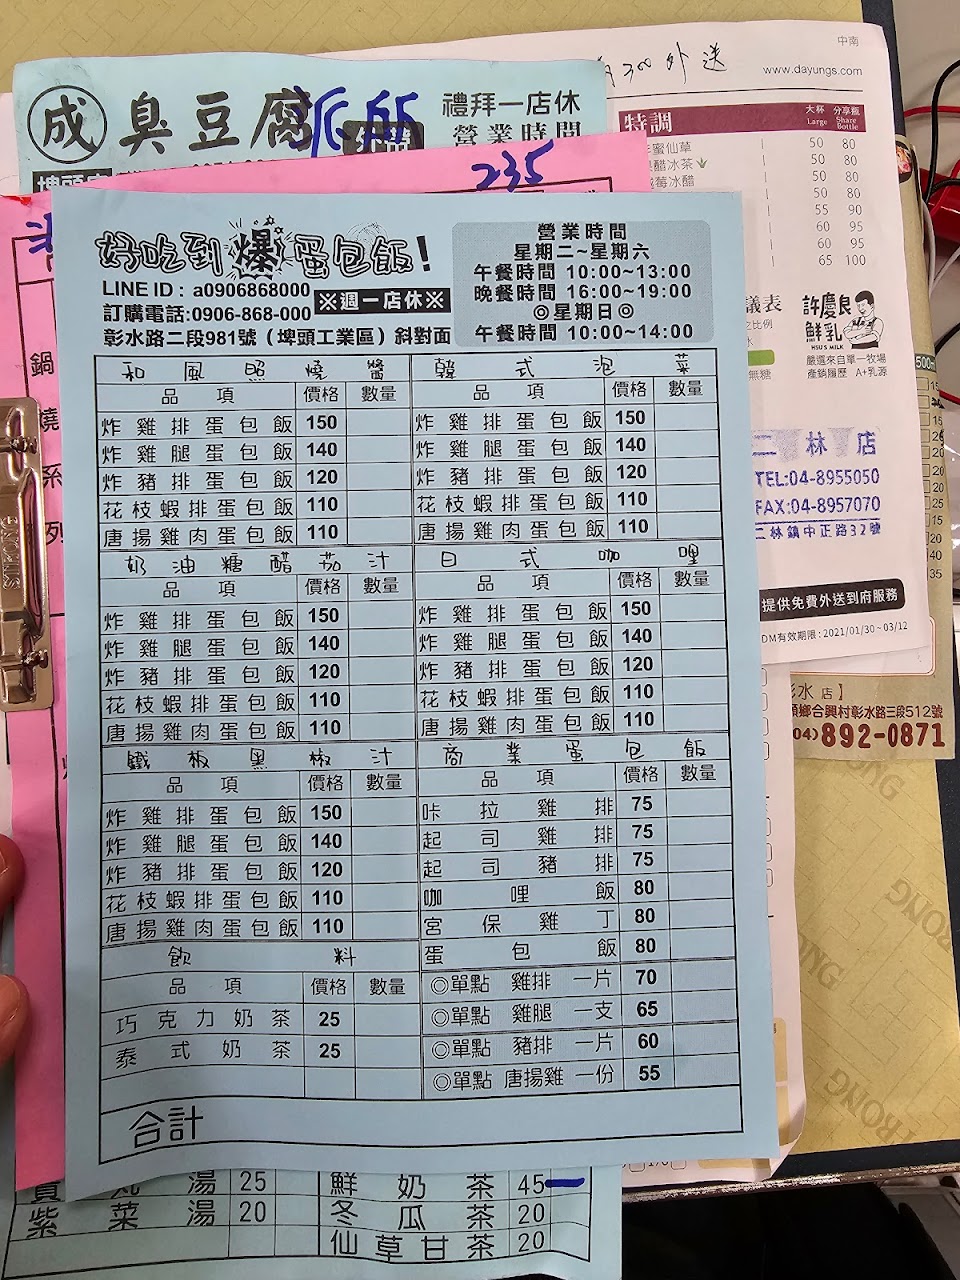 中南
300外送
www.dayungs.com
成 臭豆腐
禮拜一店休
營業時間
特調
大杯 分享瓶
Large Share Bottle
蜜仙草 50 80
醋冰茶 50 80
莓冰醋 50 80
50 80
55 90
60 95
60 95
65 100
235
好吃到爆蛋包飯!
LINE ID : a0906868000
訂購電話:0906-868-000
※週一店休※
彰水路二段981號（埤頭工業區）斜對面
營業時間
星期二~星期六
午餐時間 10:00~13:00
晚餐時間 16:00~19:00
◎星期日◎
午餐時間 10:00~14:00
和風照燒醬
品項 價格 數量
炸雞排蛋包飯 150
炸雞腿蛋包飯 140
炸豬排蛋包飯 120
花枝蝦排蛋包飯 110
唐揚雞肉蛋包飯 110
韓式泡菜
品項 價格 數量
炸雞排蛋包飯 150
炸雞腿蛋包飯 140
炸豬排蛋包飯 120
花枝蝦排蛋包飯 110
唐揚雞肉蛋包飯 110
奶油糖醋茄汁
品項 價格 數量
炸雞排蛋包飯 150
炸雞腿蛋包飯 140
炸豬排蛋包飯 120
花枝蝦排蛋包飯 110
唐揚雞肉蛋包飯 110
日式咖哩
品項 價格 數量
炸雞排蛋包飯 150
炸雞腿蛋包飯 140
炸豬排蛋包飯 120
花枝蝦排蛋包飯 110
唐揚雞肉蛋包飯 110
鐵板黑椒汁
品項 價格 數量
炸雞排蛋包飯 150
炸雞腿蛋包飯 140
炸豬排蛋包飯 120
花枝蝦排蛋包飯 110
唐揚雞肉蛋包飯 110
商業蛋包飯
品項 價格 數量
咔拉雞排 75
起司雞排 75
起司豬排 75
咖哩飯 80
宮保雞丁 80
蛋包飯 80
◎單點 雞排 一片 70
◎單點 雞腿 一支 65
◎單點 豬排 一片 60
◎單點 唐揚雞 一份 55
飲料
品項 價格 數量
巧克力奶茶 25
泰式奶茶 25
合計
鍋
燒
系
列
議表
許慶良
鮮乳
HSU'S MILK
嚴選來自單一牧場
產銷履歷 A+乳源
無糖
二林店
TEL:04-8955050
FAX:04-8957070
二林鎮中正路32號
提供免費外送到府服務
DM有效期限：2021/01/30~03/12
彰水店】
頭鄉合興村彰水路三段512號
(04)892-0871
丸湯 25
紫菜湯 20
鮮奶茶 45
冬瓜茶 20
仙草甘茶 20